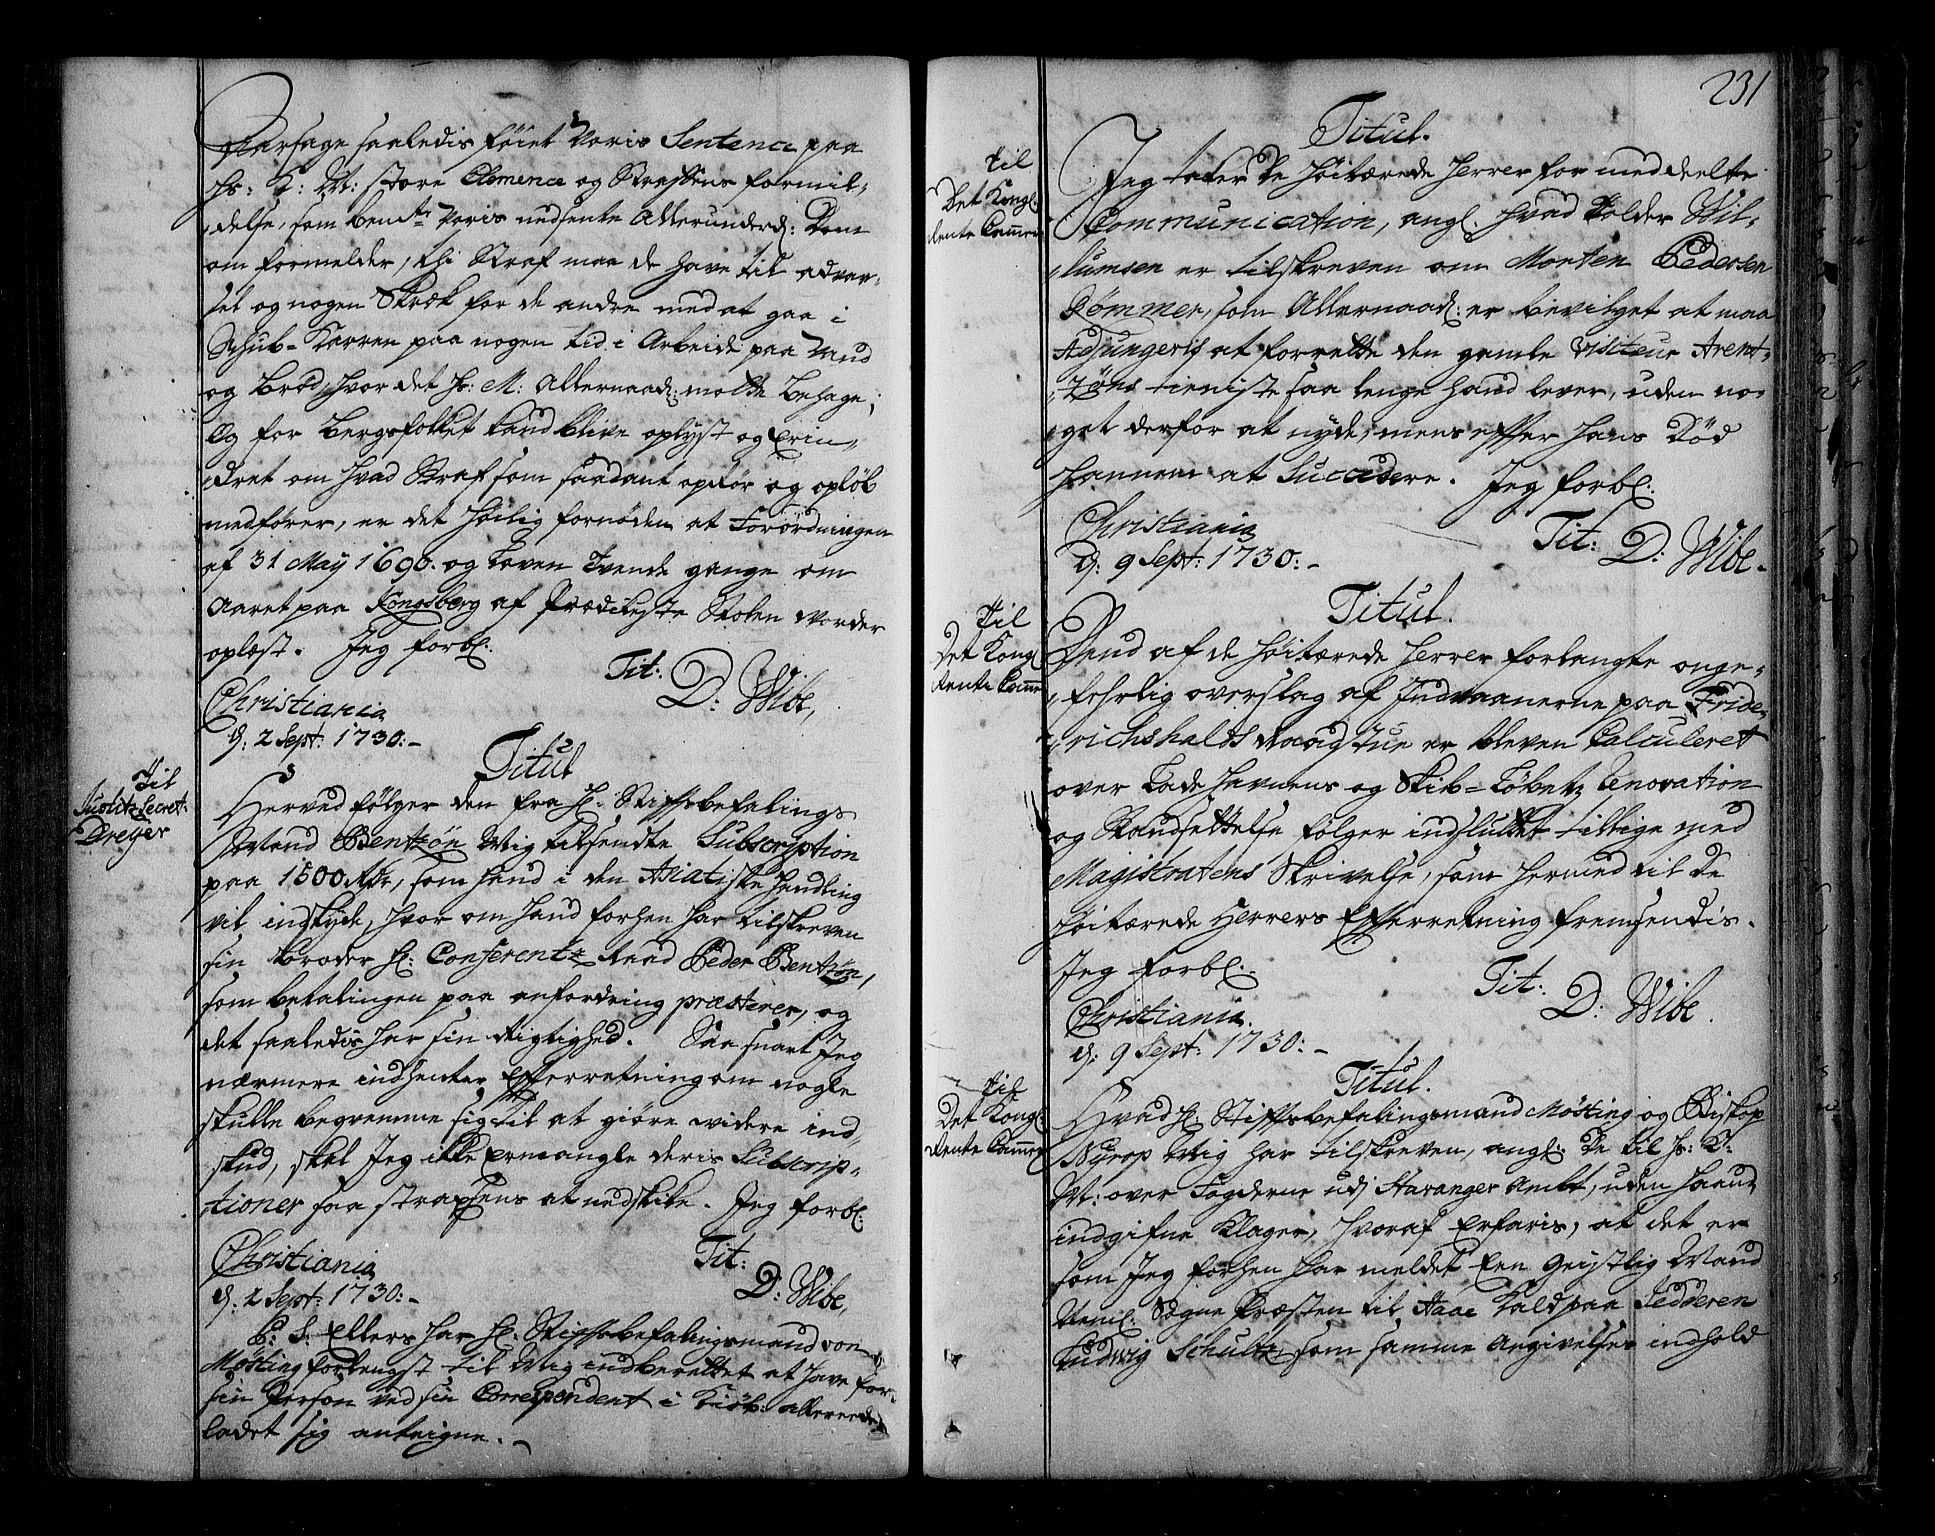 Aarsage saaledis føiet Voris Sentence paa
Hs: K: Mt: store Clemence og Straffens formil-
delse, som bemte Voris nedsente Allerunderd: Dom
om formelder, thi Straf maa de have til advar-
sel og nogen Skræk for de andre med at gaa i
Schub-Karren paa nogen tid i Arbeide paa Vand
og Brød, hvor det Hs: M: Allernaad: motte Behage;
Og for Bergsfolket kand blive oplyst og Erin-
dret om hvad Straf som saadant opkør og opløb
medfører, er det høilig fornøden at Forordningen
af 31 May 1690. og Loven Tvende gange om
Aaret paa Kongsberg af Prædikeste Stolen vorder
oplæst. Jeg forbl:
Tit:
D: Wibe,
Christiania
d: 2 Sept: 1730:-
Titul
Til
Justitz Secret:
Dreyer
Herved følger den fra Hr: Stiftsbefalings
Mand Bentzøn Mig tilsendte Subscription
paa 1500 Rdr, som hand i den Asiatiske handling
vil indskyde, hvor om hand forhen har tilskreven
sin broder Hr: Conferentz Raad Peder Bentzøn,
som betalingen paa anfordring præsterer, og
det saaledis har sin Rigtighed. Saa snart Jeg
nærmere indhenter Efterretning om nogle
skulle beqvemme sig til at giøre videre ind-
skud, skal Jeg ikke Ermangle deris Subscrip-
tioner saa strax hens at nedskike. Jeg forbl:
Tit:
D: Wibe,
Christiania
d: 2 Sept: 1730:-
P: S: Ellers har Hr: Stiftsbefalingsmand von
Møsting forlengst til Mig indberettet at have for
sin Person ved sin Correspondent i Kiøb: allereede
ladet sig anteigne.
231
Titul.
Til
Det Kongl:
Rente Cammer
Jeg takker De høitærede Herrer for meddeelte
Communication, angl: hvad Tolder Wil-
lumsen er tilskreven om Morten Pedersen
Rømmer, som Allernaad: er bevilget at maa
Adjungeris at forrette den gamle Visiteur Arent-
zøns tieniste saa lenge hand lever, uden no-
get derfor at nyde, mens efter hans Død
hannem at Succedere. Jeg forbl:
Christiania
d: 9 Sept: 1730:-
Tit: D: Wibe.
Titul.
Til
Det Kongl
Rente Camm
Dend af de høitærede Herrer forlangte onge-
fehrlig overslag af Indvaanerne paa Fride-
richshalds Raadstue er bleven Calculeret
over Lade havnens og Skib-Løbetz Renovation
og Standsettelse følger indsluttet tillige med
Magistratens Skrivelse, som hermed til De
høitærede Herrers Efterretning fremsendis.
Jeg forbl:
Tit:
D: Wibe.
Christiania.
d: 9 Sept: 1730:-
Titul.
Til
Det Kongl:
Rente Cammer
Hvad Hr: Stiftsbefalingsmand Møsting og Biskop
Nyrop Mig har tilskreven, angl: De til Hs: K:
Mt: over Fogderne udj Haranger Ambt, uden haand
indgifne Klager, hvoraf Erfaris, at det er
som Jeg forhen har meldet Een Geistlig Mand
Neml: Sogne Præsten til Aaae Kald paa Sedderen
Ludwig Schultz, som samme Angivelses indhold